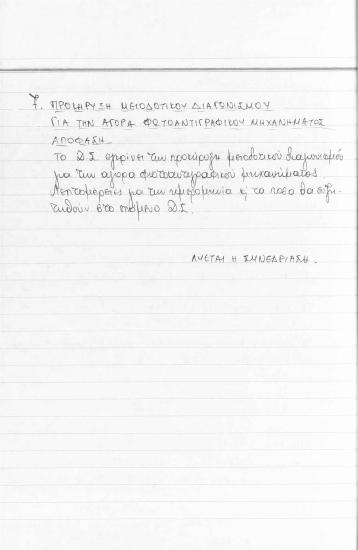 7. ΠΡΟΚΗΡΥΞΗ ΜΕΙΟΔΟΤΙΚΟΥ ΔΙΑΓΩΝΙΣΜΟΥ
ΓΙΑ ΤΗΝ ΑΓΟΡΑ ΦΩΤΟΑΝΤΙΓΡΑΦΙΚΟΥ ΜΗΧΑΝΗΜΑΤΟΣ
ΑΠΟΦΑΣΗ
Το Δ.Σ εγκρίνει την προκήρυξη μειοδοτικού διαγωνισμού
για την αγορά φωτοαντιγραφικού μηχανήματος.
Λεπτομέρειες για την ημερομηνία κ' το ποσο θα συζη-
τηθούν στο επόμενο Δ.Σ.
ΛΥΕΤΑΙ Η ΣΥΝΕΔΡΙΑΣΗ.